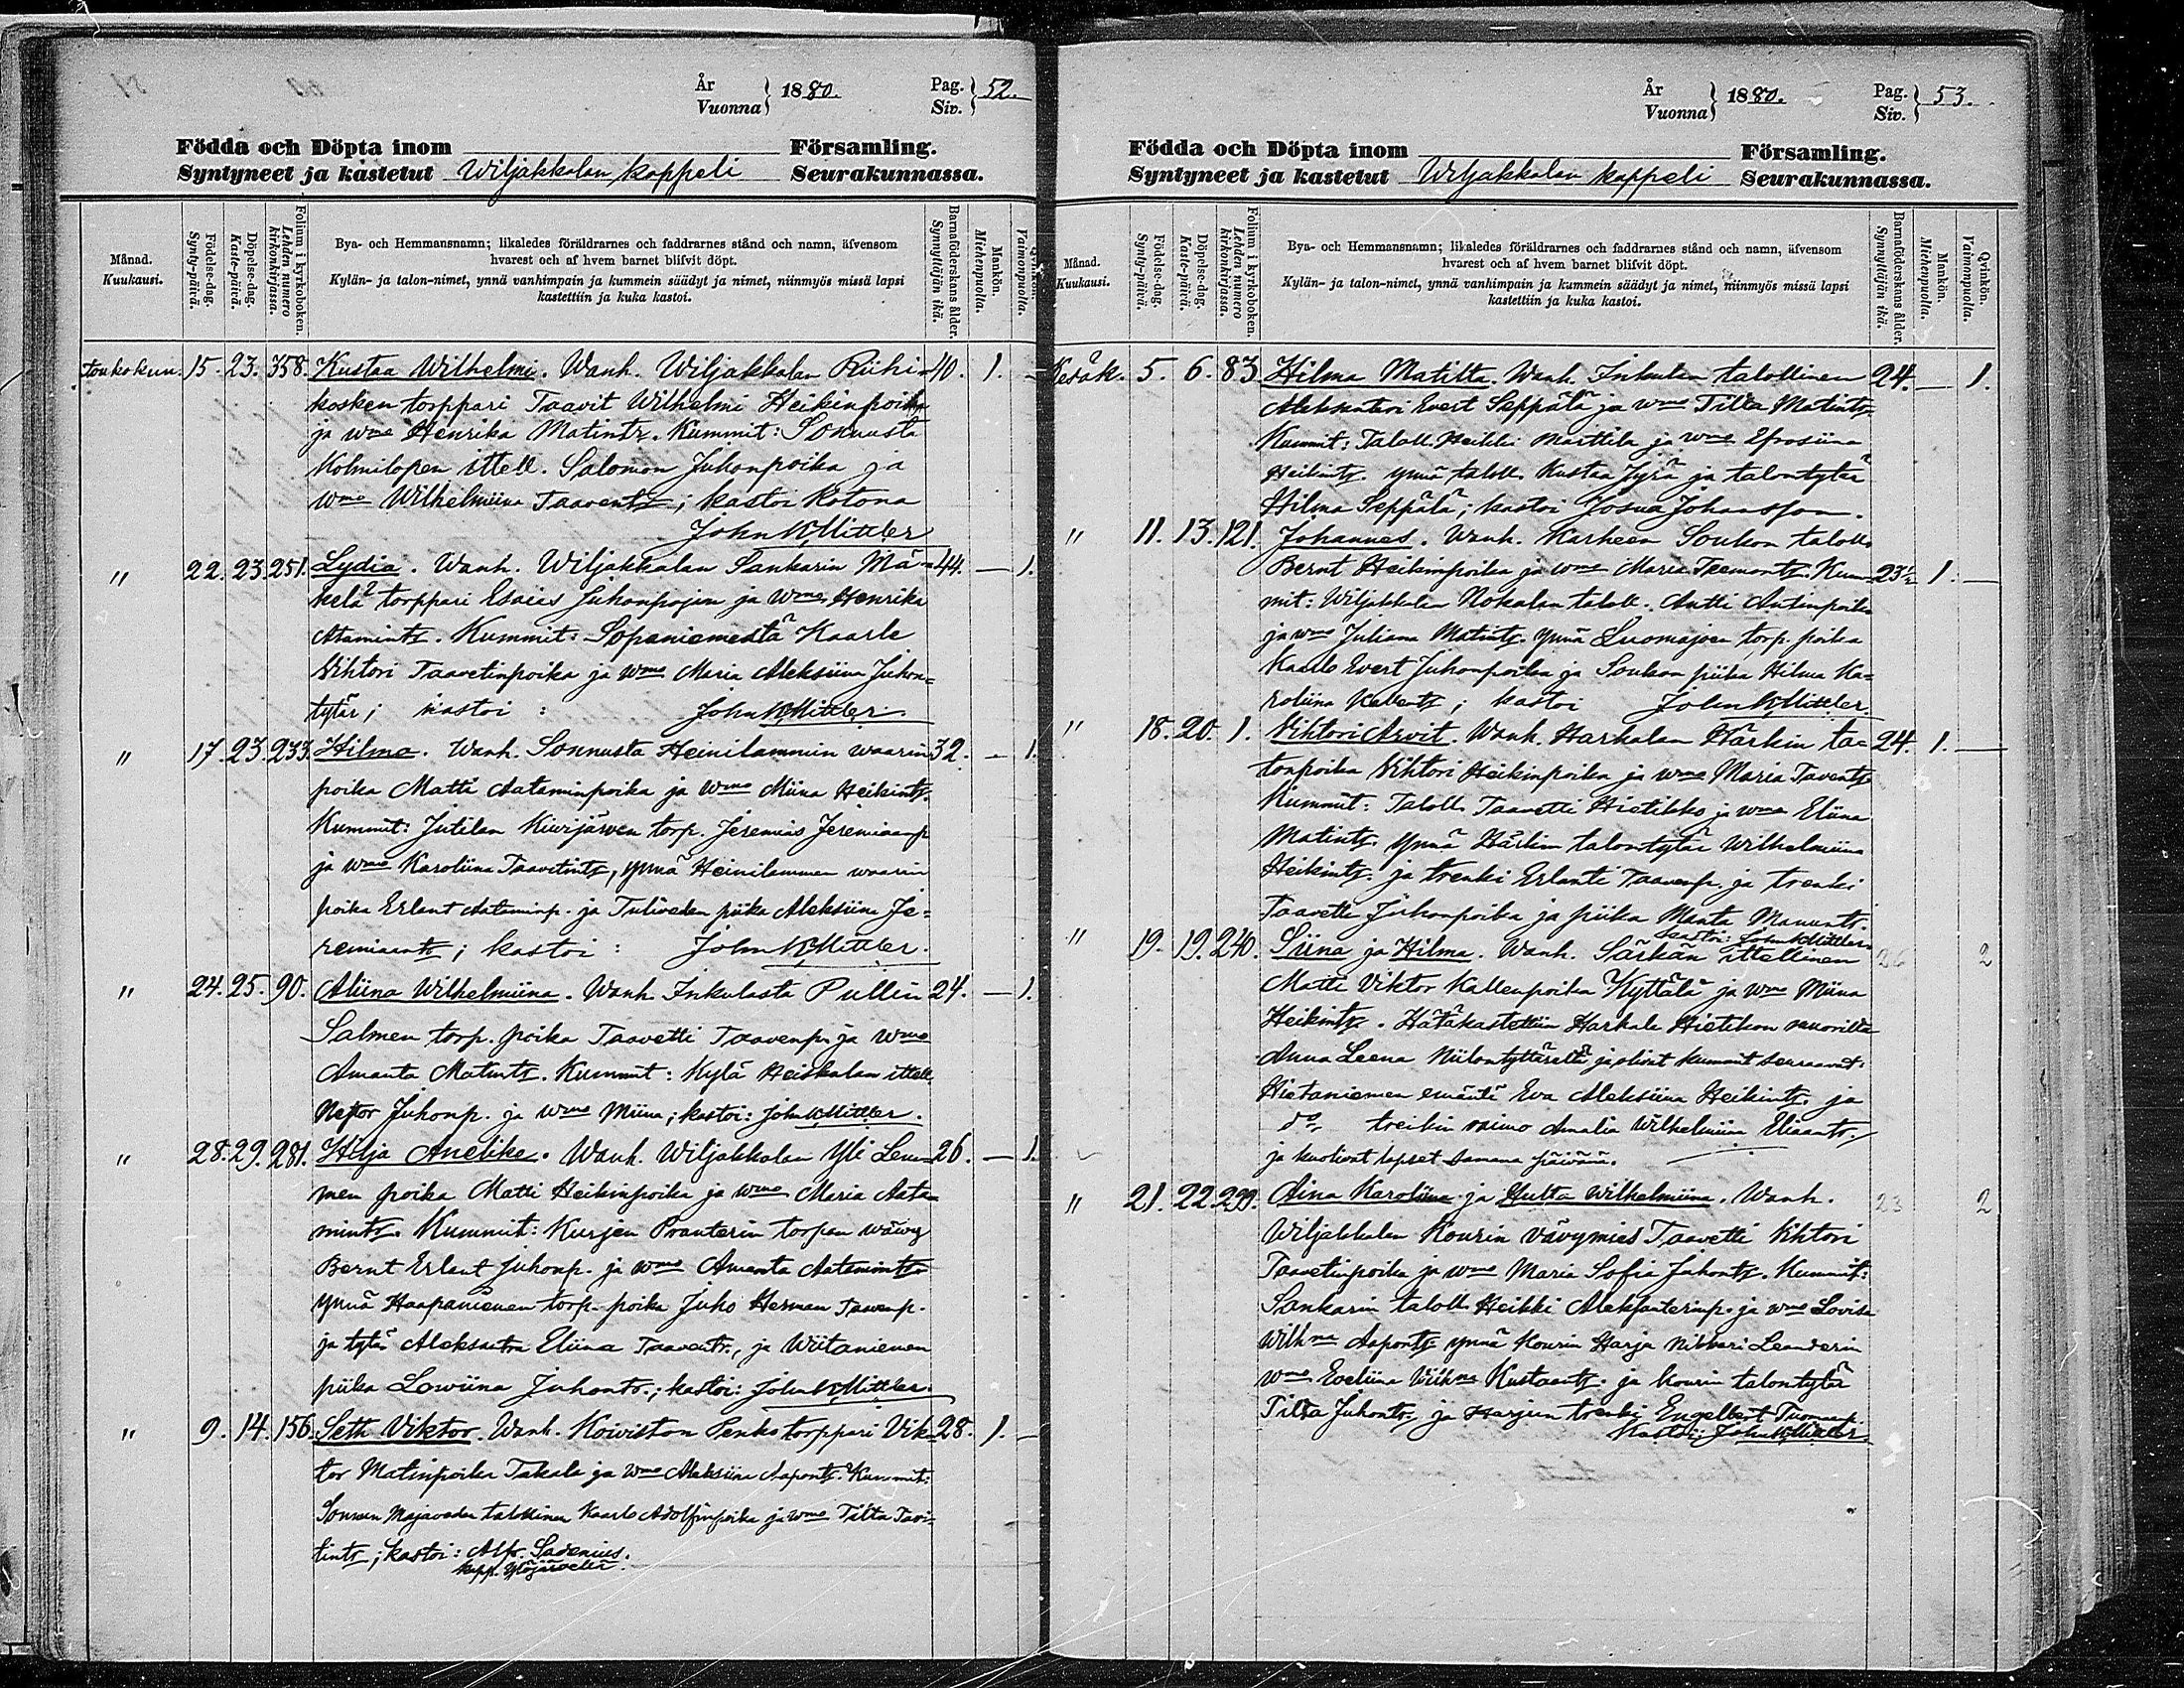 År
Vuonna } 1880. Pag.
Siv. } 52.
Födda och Döpta inom Församling.
Syntyneet ja kastetut Wiljakkalan kappeli Seurakunnassa.
Månad.
Kuukausi.
Födelse-dag.
Synty-päivä.
Döpelse-dag.
Kaste-päivä.
Folium i kyrkoboken.
Lehden numero
kirkonkirjassa.
Bya- och Hemmansnamn; likaledes föräldrarnes och faddrarnes stånd och namn, äfvensom
hvarest och af hvem barnet blifvit döpt.
Kylän- ja talon-nimet, ynnä vanhimpain ja kummein säädyt ja nimet, niinmyös missä lapsi
kastettiin ja kuka kastoi.
Barnaföderskans ålder.
Synnyttäjän ikä.
Mankön.
Miehenpuolta.
Vaimonpuolta.
toukokuu. 15. 23. 358. Kustaa Wilhelmi. Wanh. Wiljakkalan Riihi- 40. 1.
kosken torppari Taavit Wilhelmi Heikinpoika
ja wmo Henrika Matintr. Kummit: Sonnusta
Kolmilopen ittell. Salomon Juhonpoika ja
wmo Wilhelmiina Taaventr; kastoi kotona
John W Mittler
" 22. 23. 251. Lydia. Wanh. Wiljakkalan Sankarin Mä- 44. — 1.
kelä torppari Esaias Juhonpojan ja wmo Henrika
Atamintr. Kummit: Sopeniemestä Kaarle
Vihtori Taavetinpoika ja wmo Maria Aleksiina Juhon=
tytär; kastoi : John W Mittler.
" 17. 23. 233. Hilma. Wanh. Sonnusta Heinilammin waarin 32. — 1.
poika Matti Aataminpoika ja wmo Miina Heikintr.
Kummit: Jutilan Kiwijärwen torp. Jeremias Jeremiaanp
ja wmo Karoliina Taavetintr, ynnä Heinilammen waarin
poika Erlant Aataminp. ja Tuliveden piika Aleksiina Je=
remiaantr; kastoi : John W Mittler.
" 24. 25. 90. Aliina Wilhelmiina. Wanh. Inkulasta Pullin 24. — 1.
Salmen torp. poika Taavetti Taavenp. ja wmo
Amanta Matintr. Kummit: Kylä Heiskalan ittell.
Nestor Juhonp. ja wmo Miina; kastoi: John W Mittler.
" 28. 29. 281. Hilja Anelike. Wanh. Wiljakkalan Yli Lem- 26. — 1.
men poika Matti Heikinpoika ja wmo Maria Aata-
mintr. Kummit: Kurjen Pranterin torpan wäwy
Bernt Erlant Juhonp. ja wmo Amanta Aatamintr
ynnä Haapaniemen torp. poika Juho Herman Taavenp.
ja tytär Aleksantra Eliina Taaventr., ja Wiitaniemen
piika Lowiina Juhontr.; kastoi: John W Mittler.
" 9. 14. 156. Seth Viktor. Wanh. Koiviston Penko torppari Vik- 28. 1. —
tor Matinpoika Takala ja wmo Aleksiina Aapontr. Kummit:
Sonnun Majaveden talollinen Kaarlo Adolfinpoika ja wmo Tilta Tavi-
tintr; kastoi: Alfr. Sadenius.
kapp. Ylöjärvellä.
År
Vuonna } 1880. Pag.
Siv. } 53.
Födda och Döpta inom Församling.
Syntyneet ja kastetut Wiljakkalan kappeli Seurakunnassa.
Månad.
Kuukausi.
Födelse-dag.
Synty-päivä.
Döpelse-dag.
Kaste-päivä.
Folium i kyrkoboken.
Lehden numero
kirkonkirjassa.
Bya- och Hemmansnamn; likaledes föräldrarnes och faddrarnes stånd och namn, äfvensom
hvarest och af hvem barnet blifvit döpt.
Kylän- ja talon-nimet, ynnä vanhimpain ja kummein säädyt ja nimet, niinmyös missä lapsi
kastettiin ja kuka kastoi.
Barnaföderskans ålder.
Synnyttäjän ikä.
Mankön.
Miehenpuolta.
Qvinkön.
Vaimonpuolta.
Kesäk. 5. 6. 83 Hilma Matilta. Wanh. Inkulan talollinen 24. — 1.
Aleksanteri Evert Seppälä ja wmo Tilta Matintr
Kummit: Taloll. Heikki Marttila ja wmo Efrosiina
Heikintr. ynnä taloll. Kustaa Jyrä ja talontytär
Hilma Seppälä; kastoi Josua Johansson.
" 11. 13. 121. Johannes. Wanh. Karheen Soukon taloll.
Bernt Heikinpoika ja wmo Maria Tuomontr. Kum- 23½ 1. —
mit: Wiljakkalan Nokalan taloll. Antti Antinpoika
ja wmo Juliana Matintr. ynnä Suomajoen torp. poika
Kaarlo Evert Juhonpoika ja Soukon piika Hilma Ka=
roliina Kalentr; kastoi John W Mittler.
" 18. 20. 1. Vihtori Arvit. Wanh. Harhalan Härkin ta= 24. 1. —
lonpoika Vihtori Heikinpoika ja wmo Maria Taventr
Kummit: Taloll. Taavetti Hietikko ja wmo Eliina
Matintr. ynnä Härkin talontytär Wilhelmiina
Heikintr. ja trenki Erlanti Taavenp. ja trenki
Taavetti Juhonpoika ja piika Manta Manuntr.
kastoi: John W Mittler
" 19. 19. 240. Siina ja Hilma. Wanh. Särkän ittellinen 26 2
Matti Viktor Kallenpoika Kyttälä ja wmo Miina
Heikintr. Hätäkastettiin Harhala Hietikon vaarilta
Anna Leena Niilontyttäreltä ja olivat kummit seuraavat:
Hietaniemen emäntä Eva Aleksiina Heikintr. ja
do, treikin vaimo Amalia Wilhelmiina Eliaantr.
ja kuolivat lapset samana päivänä.
" 21. 22. 299. Aina Karoliina ja Hulta Wilhelmiina. Wanh. 23 2
Wiljakkalan Kourin vävymies Taavetti Vihtori
Taavetinpoika ja wmo Maria Sofia Juhontr. Kummit:
Sankarin taloll. Heikki Aleksanterinp. ja wmo Lovisa
Wilhma Aapontr ynnä Kourin Harja nikkari Leanderin
wmo Eveliina Wilhma Kustaantr. ja Kourin talontytär
Tilta Juhontr. ja Harjun trenki Engelbert Tuomaanp.
Kastoi: John W Mittler.